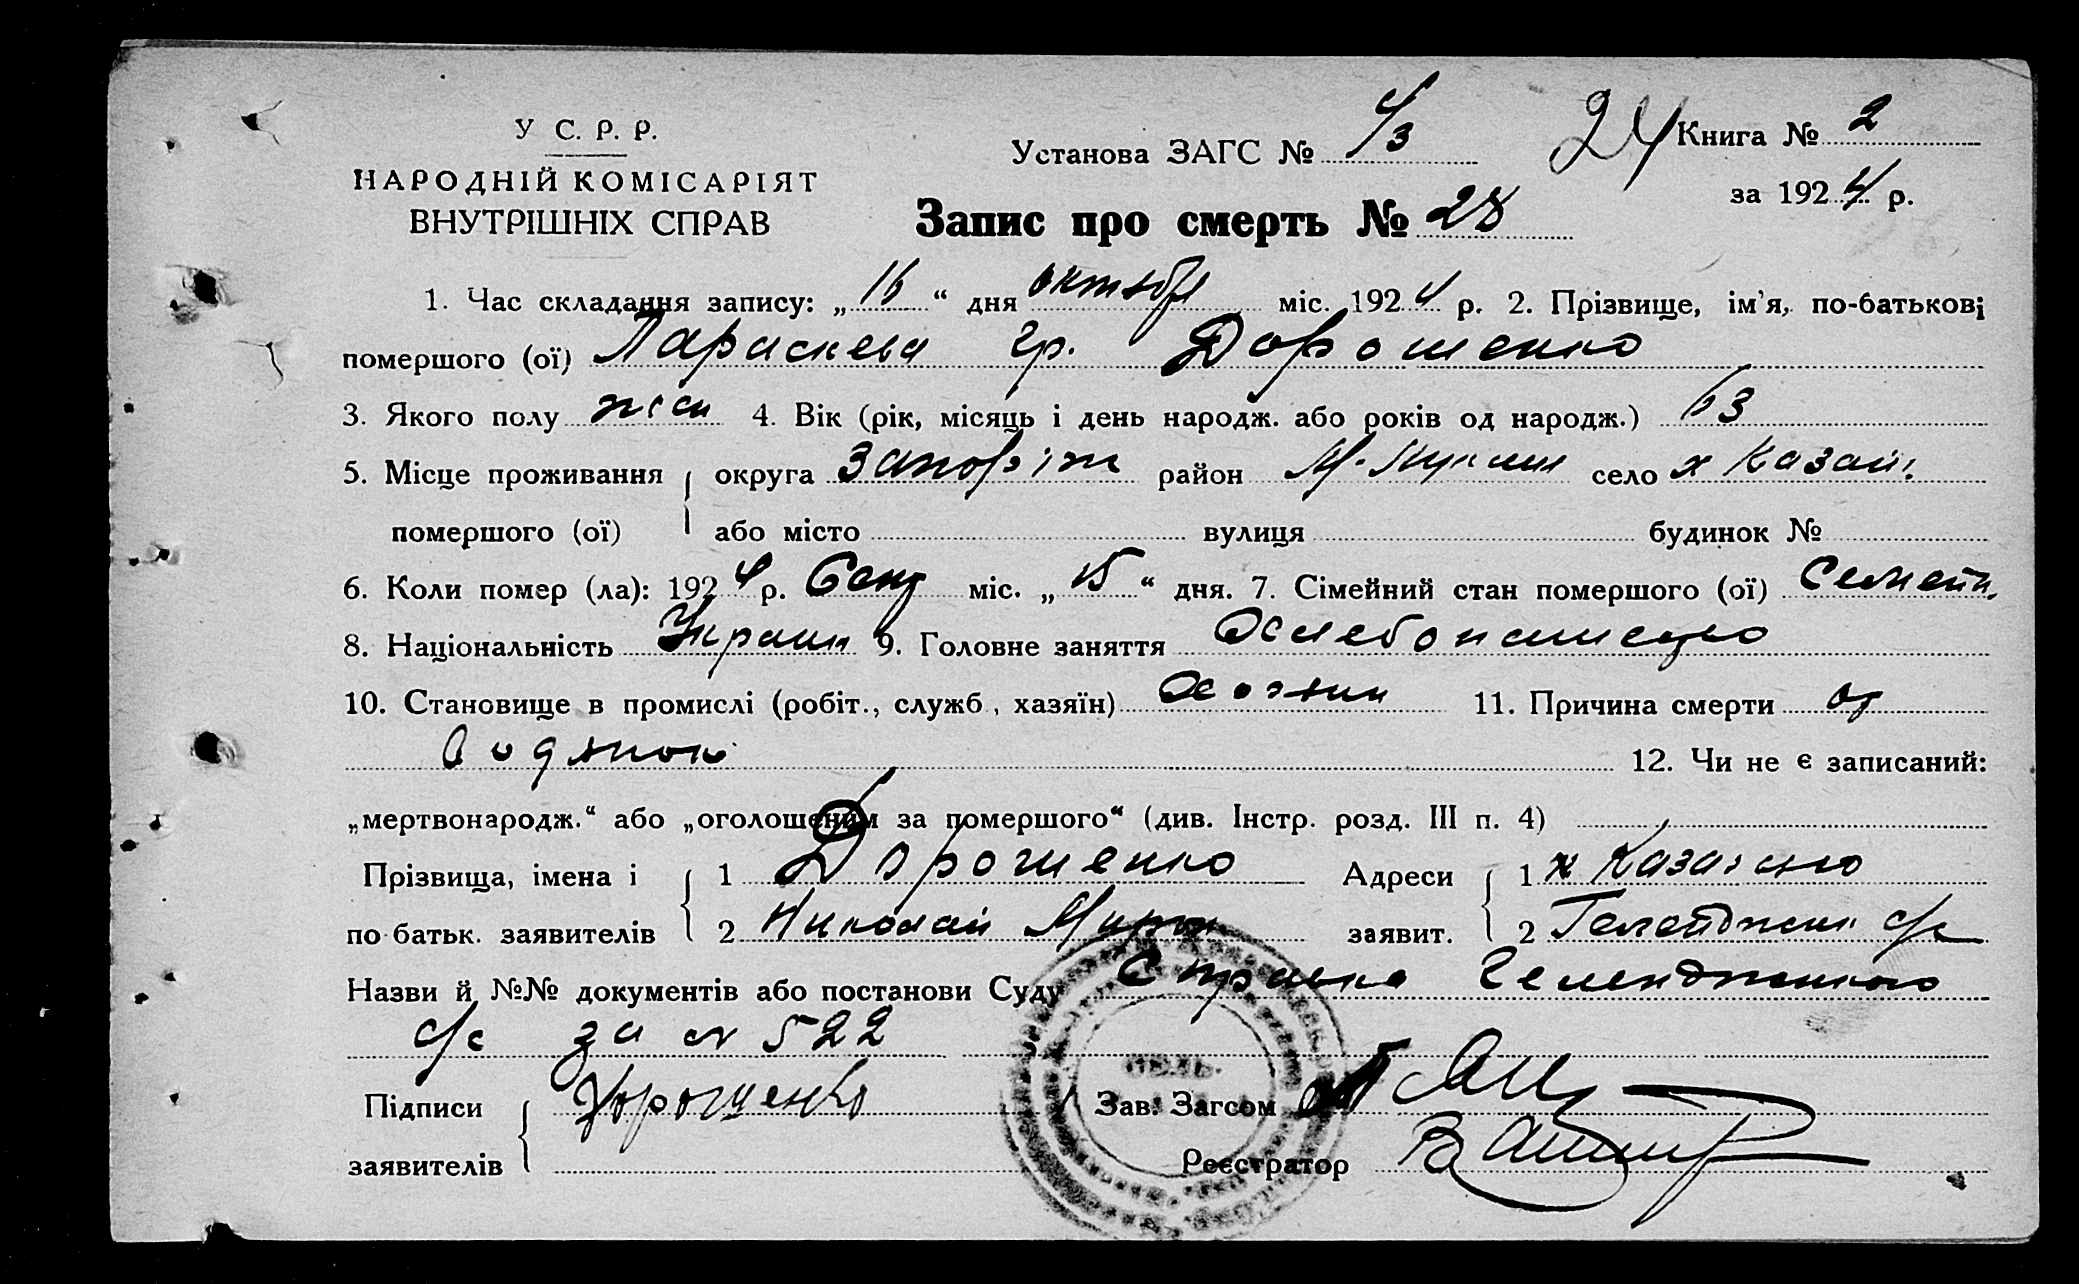 У С. Р. Р.
НАРОДНІЙ КОМІСАРІЯТ
ВНУТРІШНІХ СПРАВ
Установа ЗАГС №
24 Книга № 2
за 1924 р.
Запис про смерть № 28
1. Час складання запису: „16“ дня октября міс. 1924 р. 2. Прізвище, ім'я, по-батькові
помершого (ої) Параскева Гр. Дорошенко
3. Якого полу жен 4. Вік (рік, місяць і день народж. або років од народж.) 63
5. Місце проживання округа Запоріж район село х Казач.
помершого (ої) або місто вулиця будинок №
6. Коли помер (ла): 1924 р. Сент міс. „15“ дня. 7. Сімейний стан помершого (ої) Семейн.
8. Національність Украин 9. Головне заняття Хлебопашество
10. Становище в промислі (робіт., служб., хазяїн) Хозяин 11. Причина смерти от
водянки
12. Чи не є записаний:
„мертвонародж.“ або „оголошеним за помершого“ (див. Інстр. розд. III п. 4)
Прізвища, імена і 1 Дорошенко Адреси 1 х
по батьк. заявителів 2 Николай Мирон заявит. 2 с/с
Назви й №№ документів або постанови Суду Справка Гелендженского
с/с за № 522
Підписи Дорошенко Зав. Загсом
заявителів Реєстратор